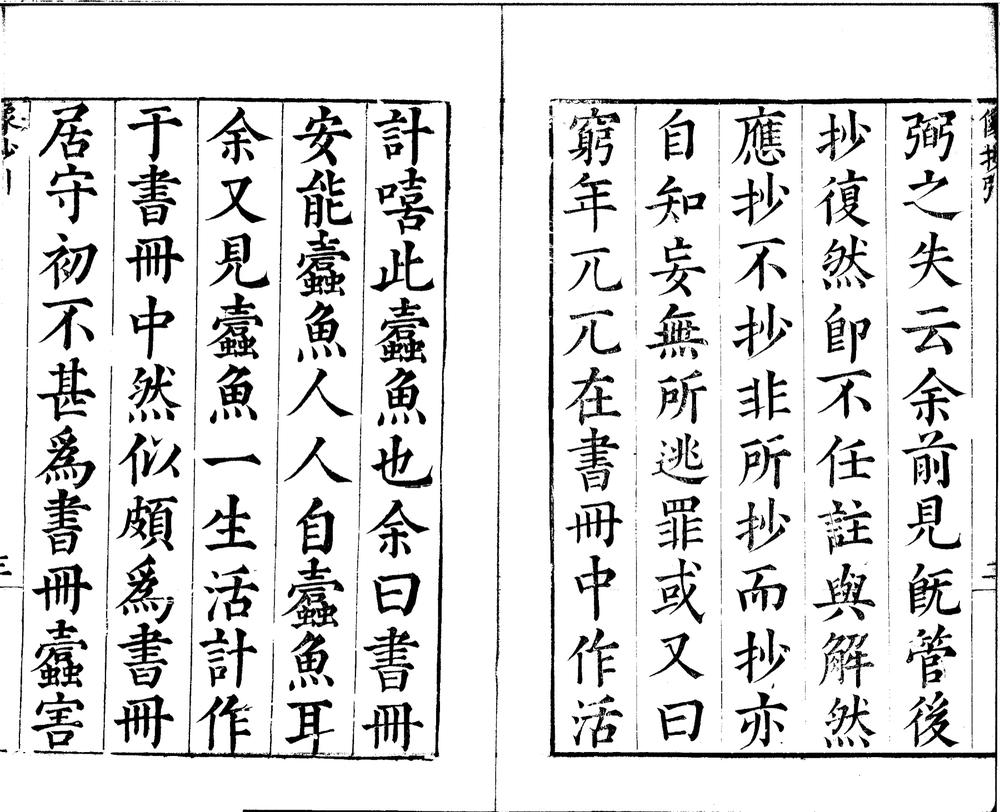 弼之失云余前見旣管後
抄復然卽不任註與解然
應抄不抄非所抄而抄亦
自知妄無所逃罪或又曰
窮年兀兀在書冊中作活
計嘻此蠹魚也余曰書冊
安能蠹魚人人自蠹魚耳
余又見蠹魚一生活計作
于書冊中然似頗爲書冊
居守初不甚爲書冊蠹害